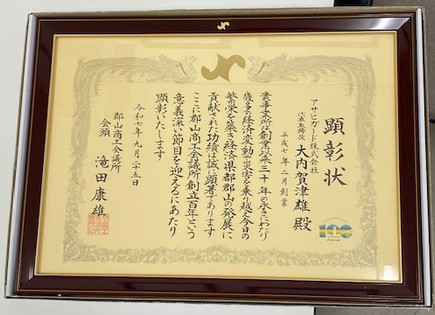 顕彰状
アサヒガード株式会社
代表取締役
大内賀津雄 殿
平成七年二月創業
貴事業所は創業以来三十年の永きにわたり
幾多の経済変動や災害を乗り越え今日の
繁栄を築き経済県都郡山の発展に
貢献された功績は誠に顕著であります
ここに郡山商工会議所創立百年という
意義深い節目を迎えるにあたり
顕彰いたします
令和七年九月二十五日
郡山商工会議所
会頭 滝田康雄
100